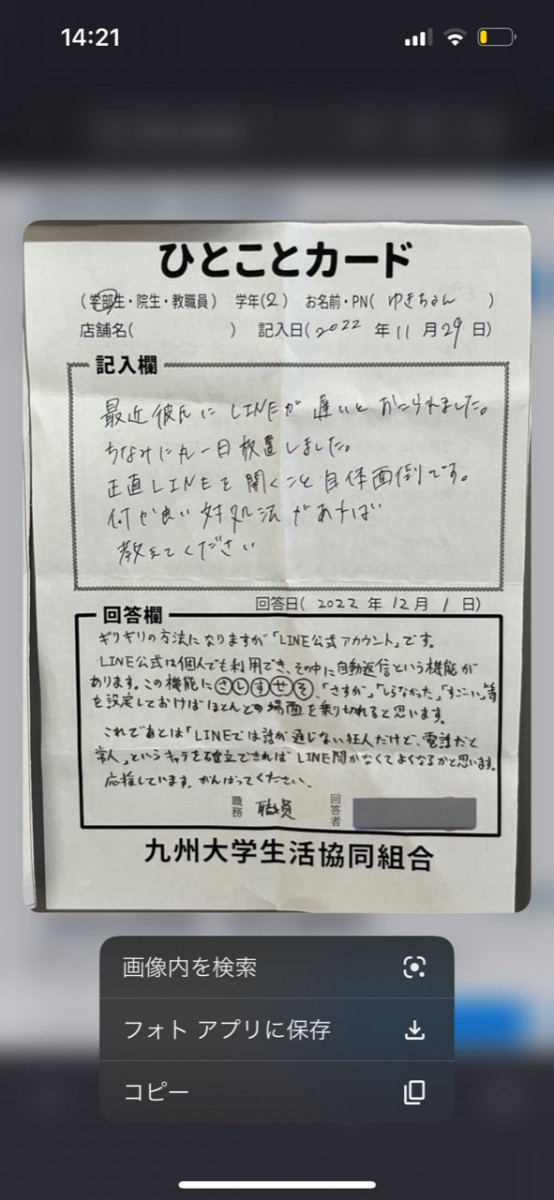 14:21
ひとことカード
(学部生・院生・教職員) 学年(2) お名前・PN( ゆきちゃん )
店舗名( ) 記入日(2022 年 11 月 29 日)
記入欄
最近彼氏にLINEが遅いとおこられました。
ちなみに丸一日放置しました。
正直LINEを開くこと自体面倒です。
何か良い対処法があれば
教えてください
回答日( 2022 年 12 月 1 日)
回答欄
ギリギリの方法になりますが「LINE公式アカウント」です。
LINE公式は個人でも利用でき、その中に自動返信という機能が
あります。この機能にさしすせそ、「さすが」、「しらなかった」、「すごい」等
を設定しておけばほとんどの場面を乗り切れると思います。
これであとは「LINEでは話が通じない狂人だけど、電話だと
常人」というキャラを確立できればLINE開かなくてよくなるかと思います。
応援しています。がんばってください。
職務 職員 回答者
九州大学生活協同組合
画像内を検索
フォト アプリに保存
コピー